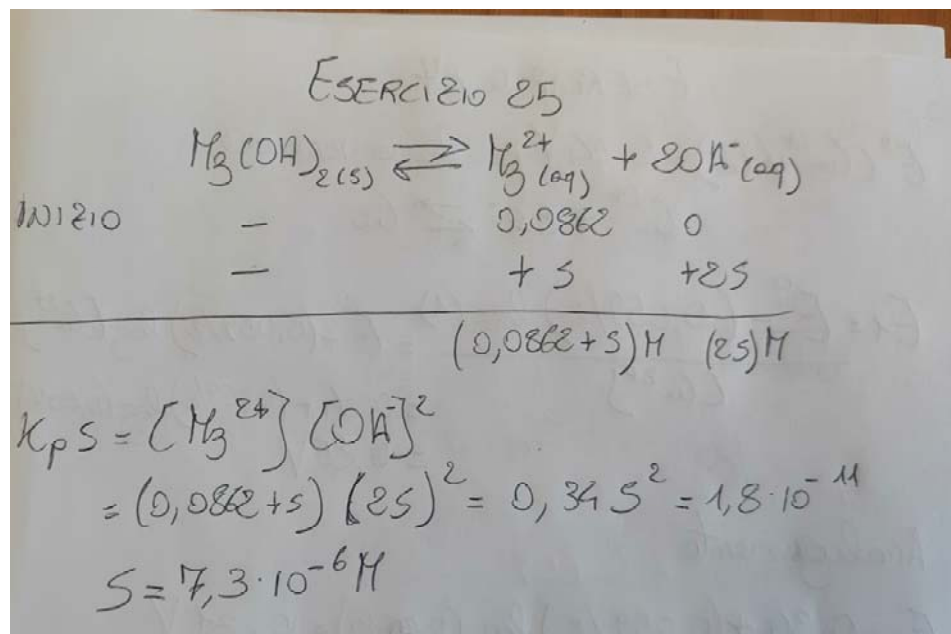 ESERCIZIO 25
Mg(OH)2(s) ⇌ Mg2+(aq) + 2OH-(aq)
INIZIO - 0,0862 0
- + s +2s
(0,0862+s)M (2s)M
Kps = [Mg2+] [OH-]²
= (0,0862+s) (2s)² = 0,34 s² = 1,8·10⁻¹¹
S = 7,3·10⁻⁶ M